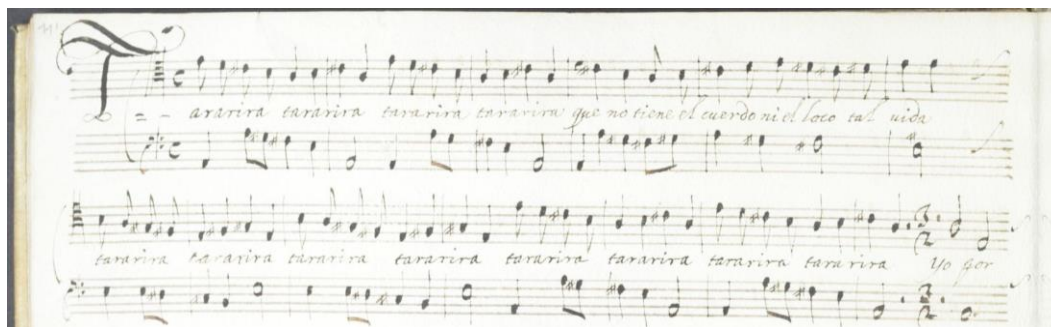 Tararira tararira tararira tararira que no tiene el cuerdo ni el loco tal vida
tararira tararira tararira tararira tararira tararira tararira tararira Yo por